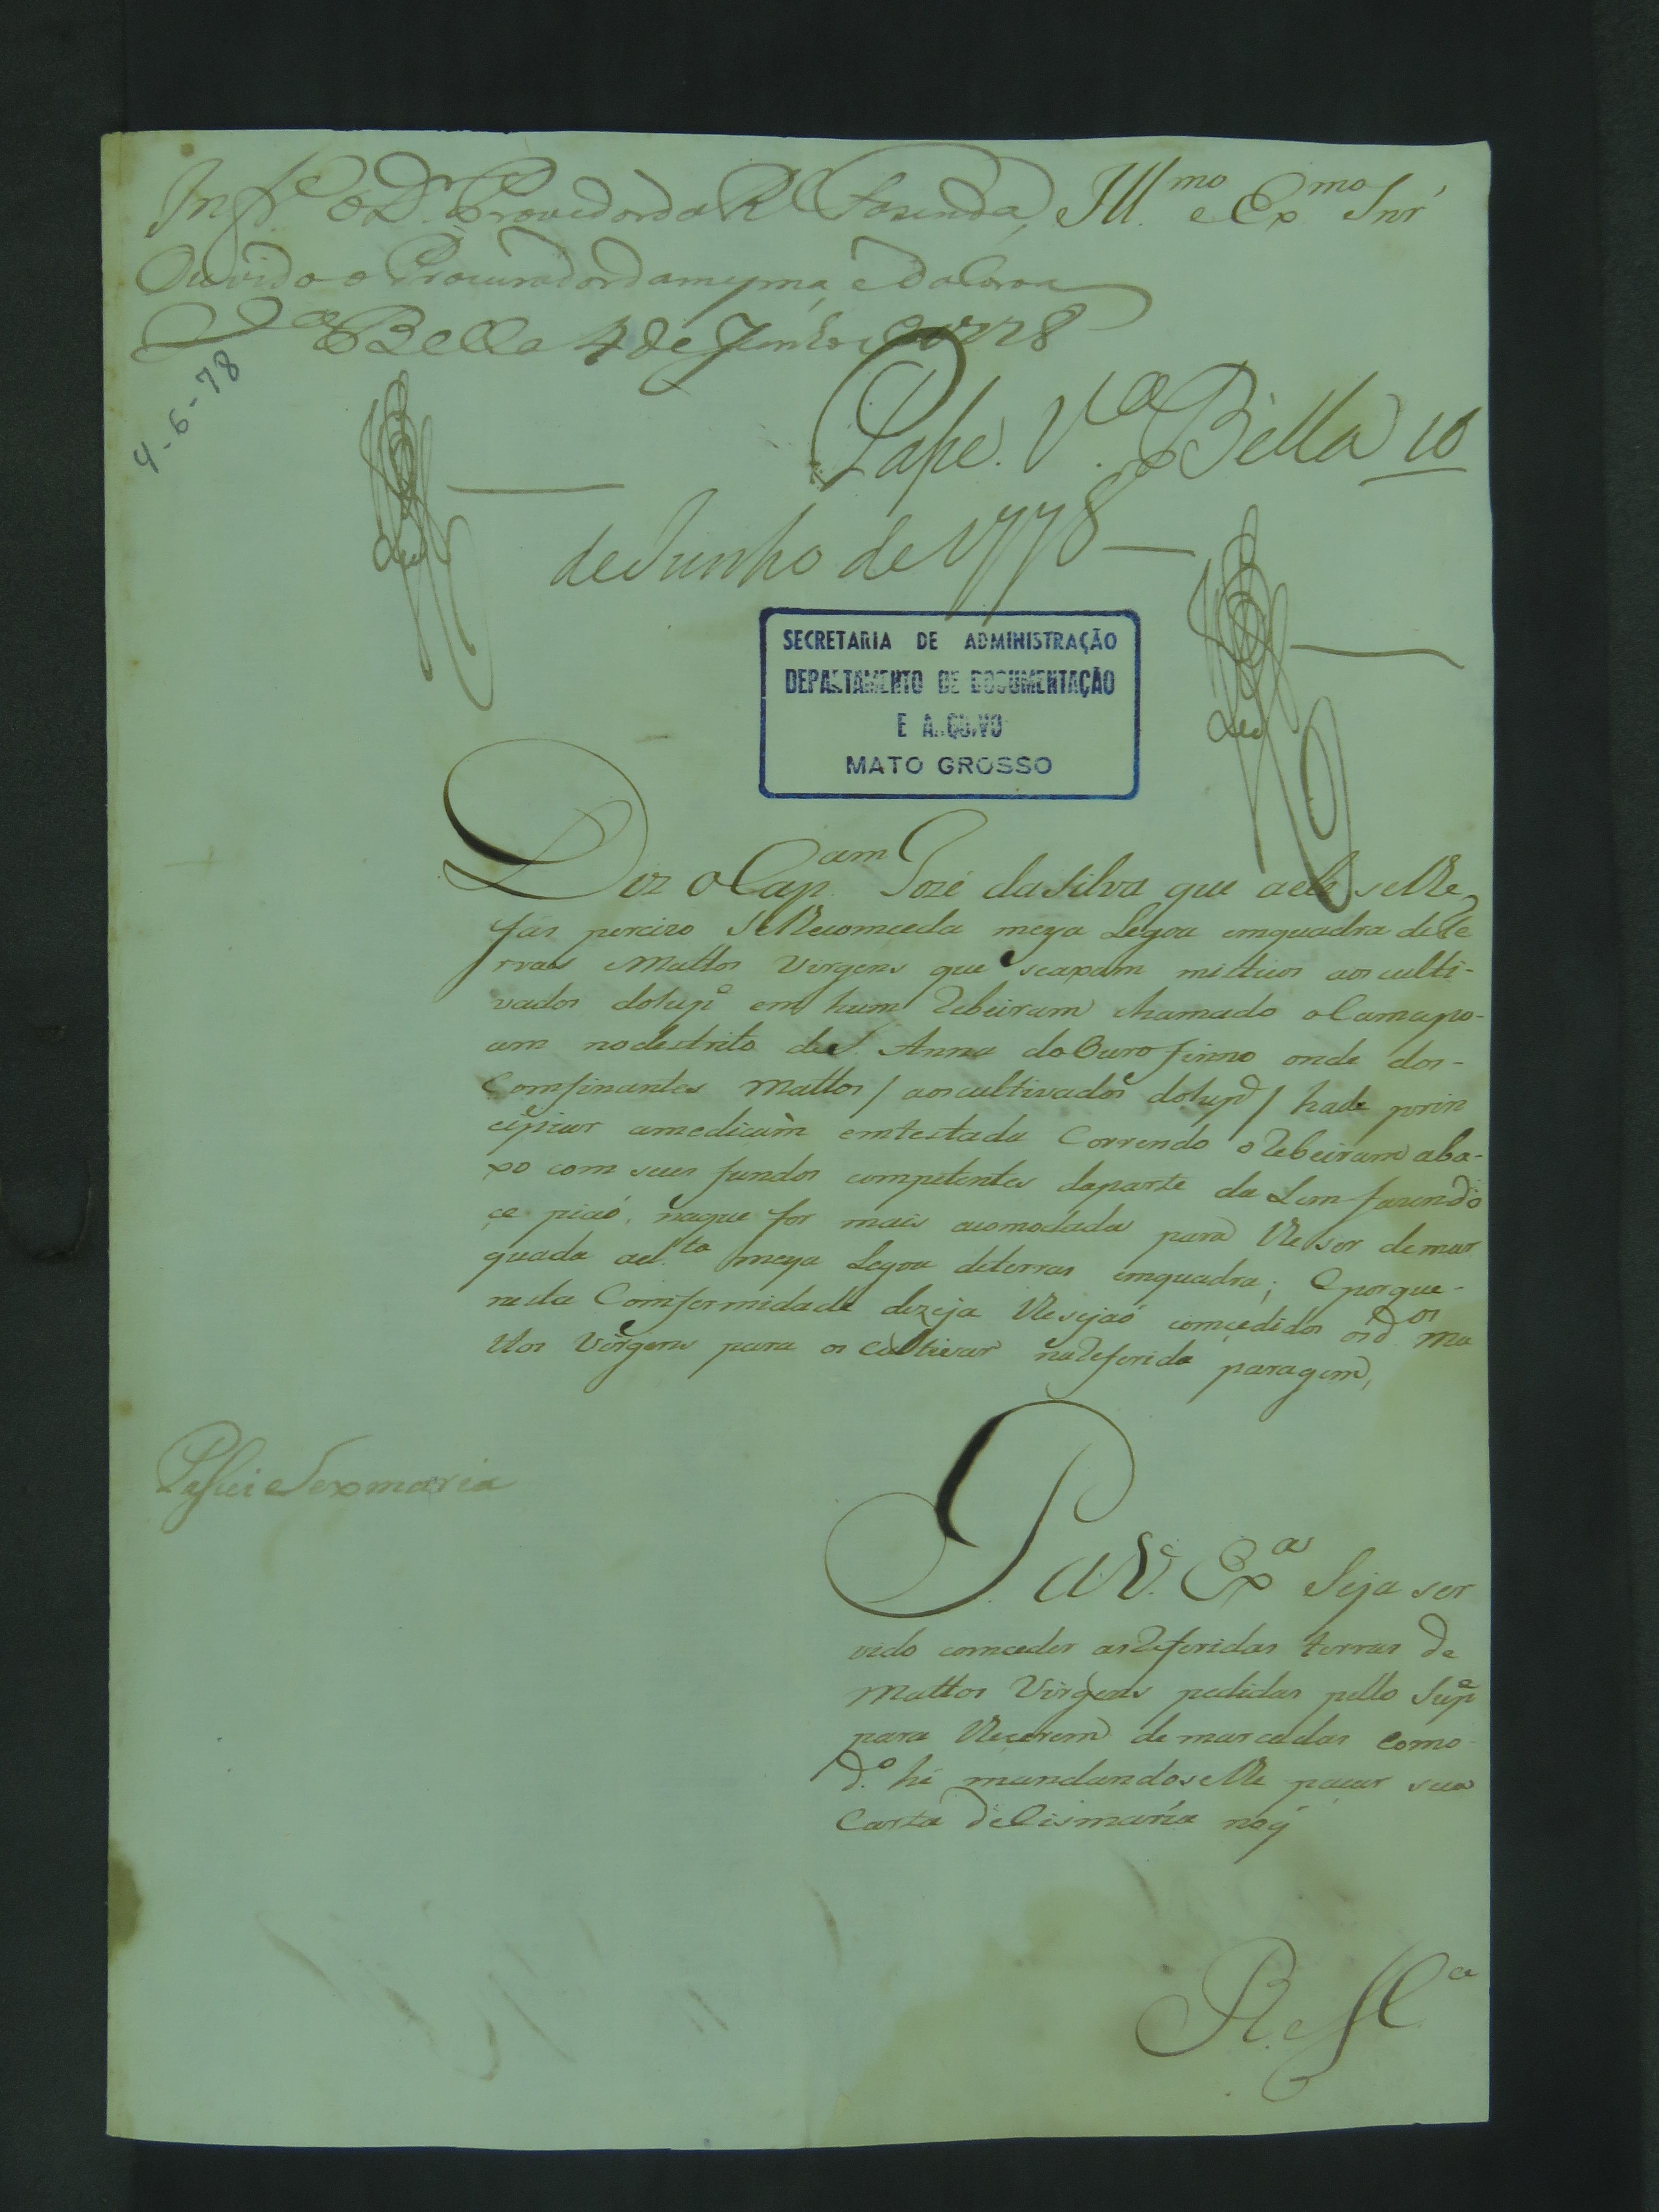 Inf.e o D.r Provedor da R.l Fazenda, Ill.mo e Ex.mo Snr'
Ouvido o Procurador da mesma, e da Coroa
V.a Bella 4 de Junho de 1778
4-6-78
Passe. V.a Bella 10
de Junho de 1778
SECRETARIA DE ADMINISTRAÇÃO
DEPARTAMENTO DE DOCUMENTAÇÃO
E ARQUIVO
MATO GROSSO
Diz o Cap.am Jozé da Silva que a elle se lhe
faz percizo se lhe comceda meya Legoa emquadra de te
rras Mattos Virgens que se axam misticos aos culti-
vados do sup.e em hum Rebeiram chamado o Camapo-
am no destrito de S. Anna do Ouro finno onde dos-
Comfinantes Mattos / aos cultivados do sup.e / hade prin
cipiar a medicam em testada Correndo o Rebeiram aba-
xo com seus fundos competentes da parte da Lem fazendo
çe pião, na que for mais acomodada para lhe ser demar
quada a d.ta meya Legoa de terras emquadra; E porque-
nesta Comformidade dezeja lhe sejaõ comçedidos os d.os Ma
ttos Virgens para os cultivar na Referida paragem,
Passei Sexmaria
P. a V. Ex.as Seja ser
vido comceder as Referidas terras de
Mattos Virgens pedidas pello Sup.e
para lhe cerem demarcadas como
d.o hé mandandoselhe paçar sua
Carta de Cismaria no q'
R. M.ce